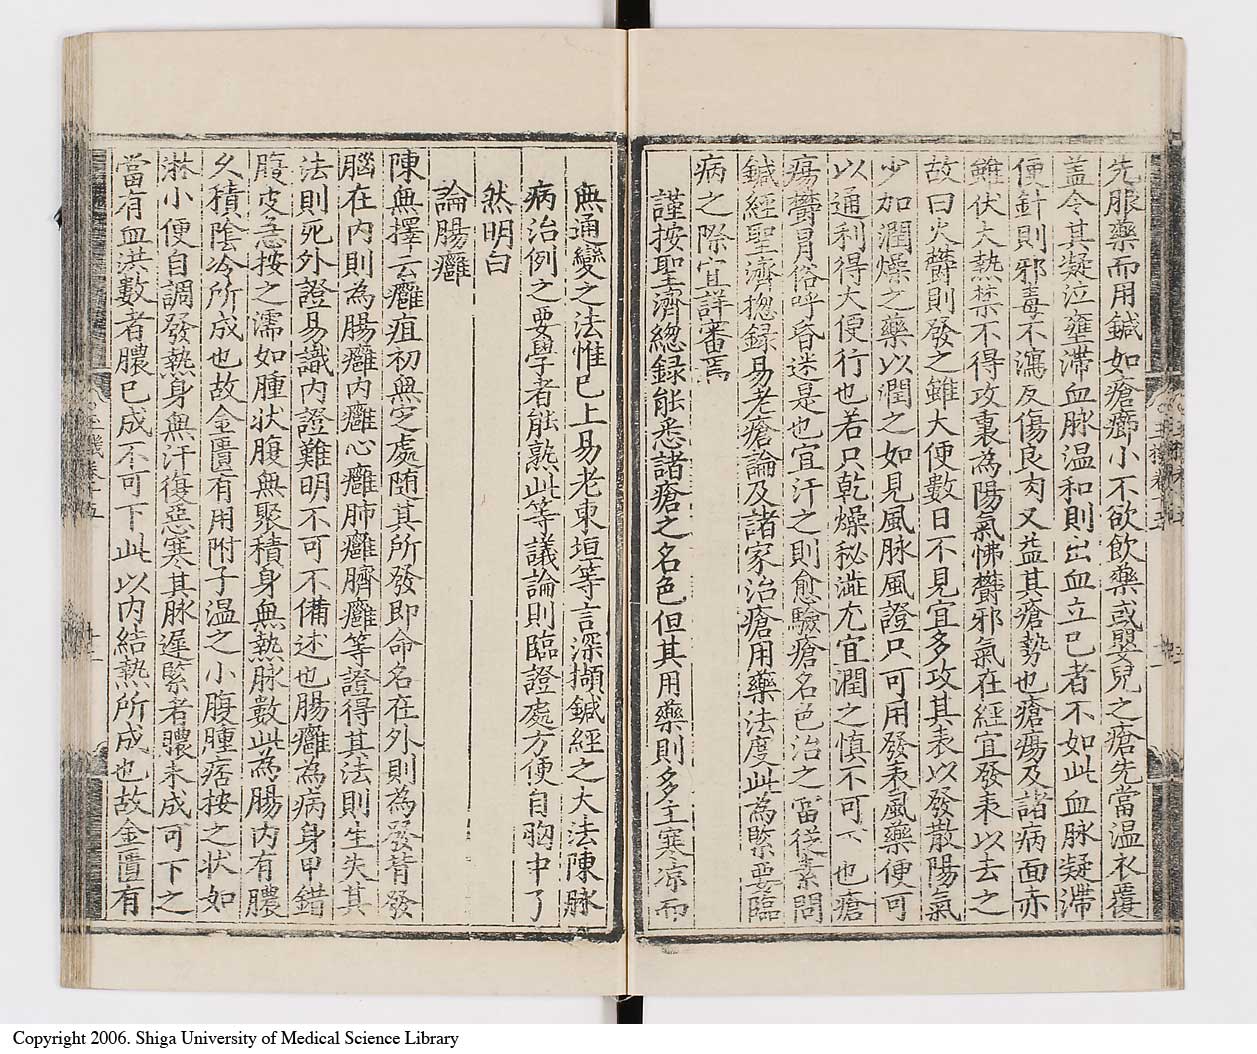 先服藥而用鍼如瘡癤小不欲飲藥或嬰兒之瘡先當温衣覆
盖令其凝泣壅滯血脉温和則出血立已者不如此血脉凝滯
便針則邪毒不瀉反傷良肉又益其瘡勢也瘡瘍及諸病面赤
雖伏大熱禁不得攻裏為陽氣怫欝邪氣在經宜發表以去之
故曰火欝則發之雖大便數日不見宜多攻其表以發散陽氣
少加潤燥之藥以潤之如見風脉風證只可用發表風藥便可
以通利得大便行也若只乾燥秘澁尤宜潤之慎不可下也瘡
瘍欝冒俗呼昏迷是也宜汗之則愈驗瘡名色治之當從素問
鍼經聖濟揔録易老瘡論及諸家治瘡用藥法度此為緊要臨
病之際宜詳審焉
謹按聖濟總録能悉諸瘡之名色但其用藥則多主寒凉而
無通變之法惟已上易老東垣等言深擷鍼經之大法陳脉
病治例之要學者能熟此等議論則臨證處方便自胸中了
然明白
論腸癰
陳無擇云癰疽初無定處随其所發即命名在外則為發背發
腦在内則為腸癰内癰心癰肺癰臍癰等證得其法則生失其
法則死外證易識内證難明不可不備述也腸癰為病身甲錯
腹皮急按之濡如腫状腹無聚積身無熱脉數此為腸内有膿
久積陰冷所成也故金匱有用附子温之小腹腫痞按之状如
淋小便自調發熱身無汗復惡寒其脉遲緊者膿未成可下之
當有血洪數者膿已成不可下此以内結熱所成也故金匱有
Copyright 2006. Shiga University of Medical Science Library